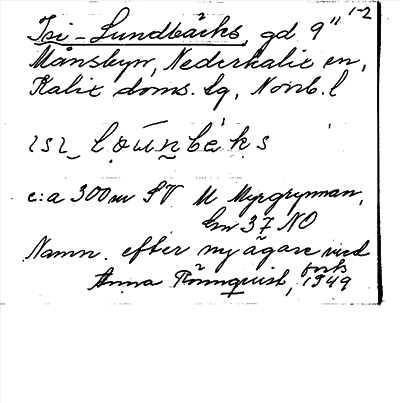 Isi-Lundbäcks, gd 9" 1-2
Månsbyn, Nederkalix en,
Kalix doms. lg, Norrb. l
ɪsɪ lounbèks
c:a 300 m SV M Myrgrynnan,
km 37 NO
Namn. efter ny ägare med
Anna Rönnquist, 1949